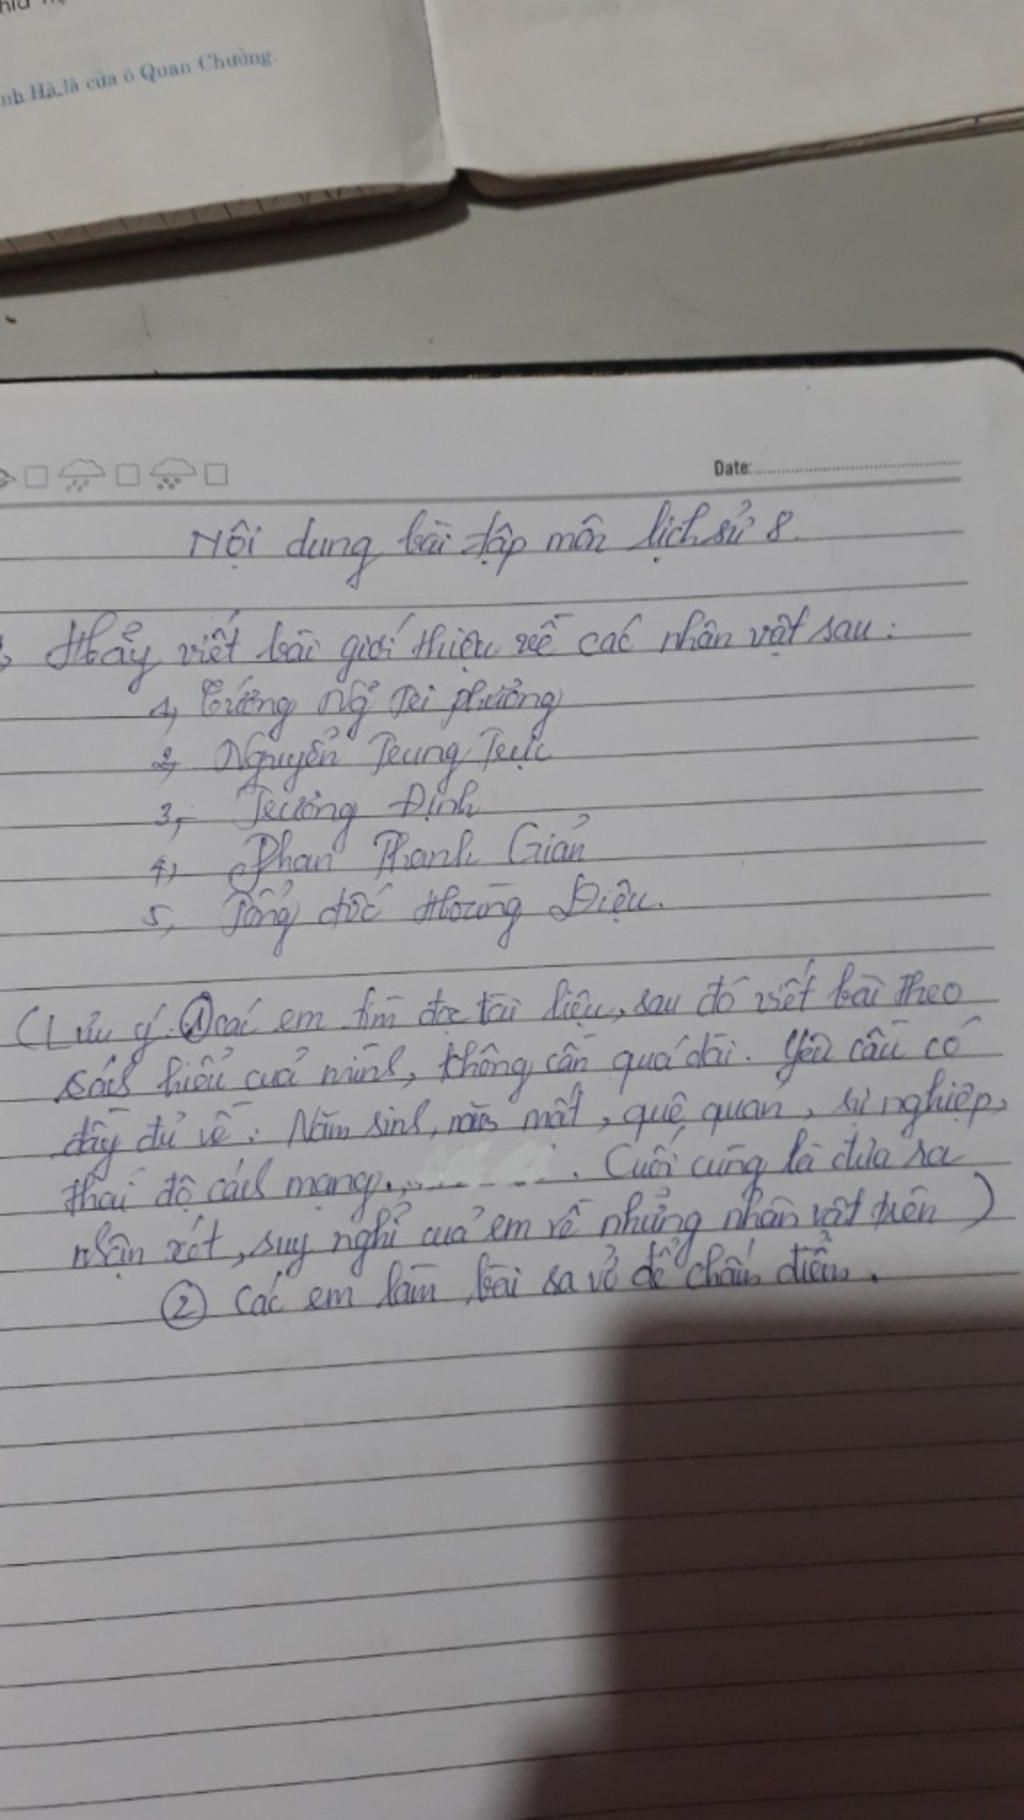 nh Hà là cửa ô Quan Chưởng.
Date:
Nội dung bài tập môn lịch sử 8.
Hãy viết bài giới thiệu về các nhân vật sau:
1, Tướng Ng Tri phương
2, Nguyễn Trung Trực
3, Trương Định
4, Phan Thanh Giản
5, Tổng đốc Hoàng Diệu.
(Lưu ý. ① các em tìm đọc tài liệu, sau đó viết bài theo
cách hiểu của mình, không cần quá dài. yêu cầu có
đầy đủ về: Năm sinh, năm mất, quê quan, sự nghiệp,
thái độ cách mạng....... Cuối cùng là đưa ra
nhận xét, suy nghĩ của em về những nhân vật trên)
② Các em làm bài ra vở để chấm điểm.